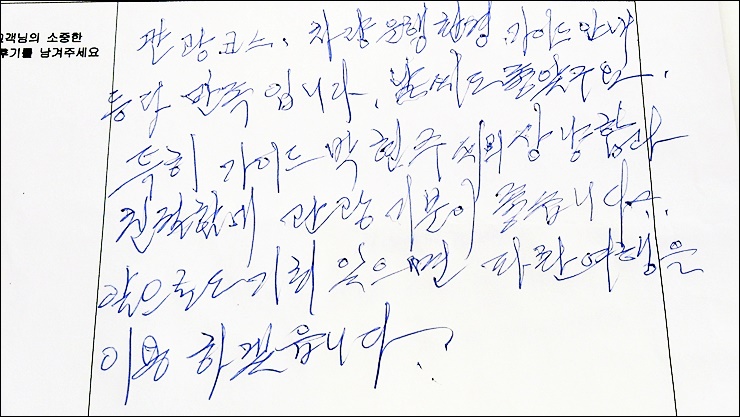 고객님의 소중한
후기를 남겨주세요
관광코스, 차량운행환경, 가이드안내
등 다 만족입니다. 날씨도 좋았구요.
특히 가이드 박현주씨의 상냥함과
친절함에 관광기분이 좋습니다.
앞으로도 기회 있으면 파란여행을
이용하겠읍니다.